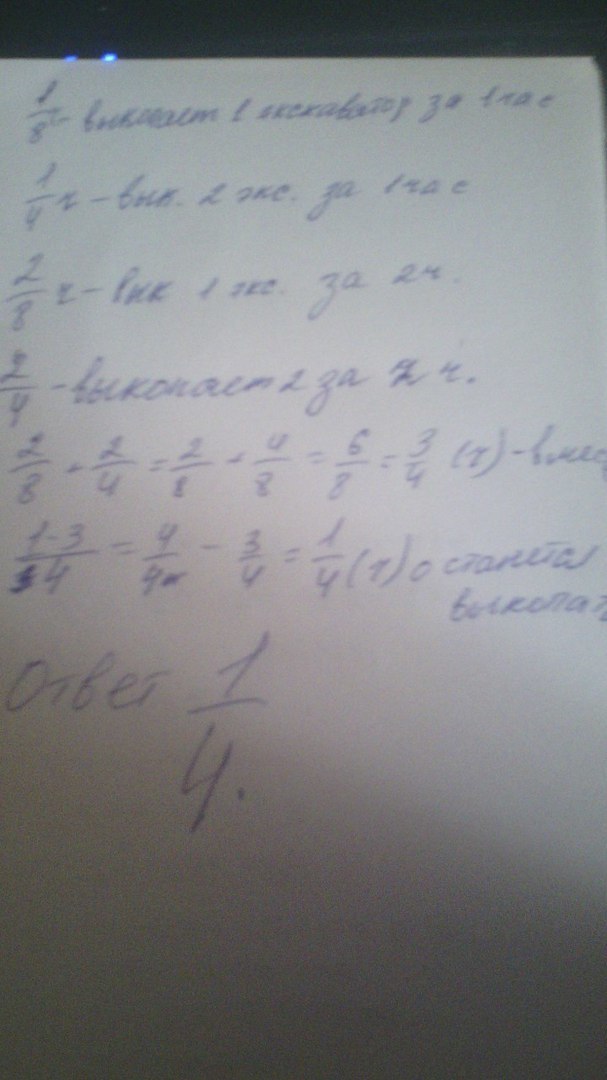 1/8 - выкопает 1 экскаватор за 1 час
1/4 ч - вык. 2 экс. за 1 час
2/8 ч - вык 1 экс. за 2 ч.
2/4 - выкопает 2 за 2 ч.
2/8 + 2/4 = 2/8 + 4/8 = 6/8 = 3/4 (ч) - вмес
1-3/4 = 4/4 - 3/4 = 1/4 (ч) останется
выкопат
Ответ 1/4.